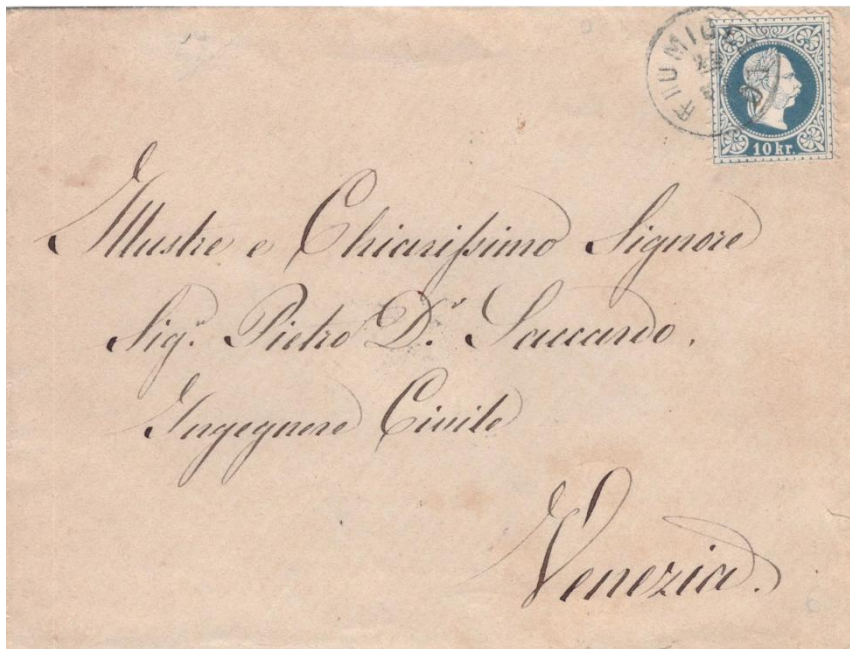 FIUMICE
10 kr.
Illustre e Chiarissimo Signore
Sig.r Pietro D.r Saccardo.
Ingegnere Civile
Venezia.